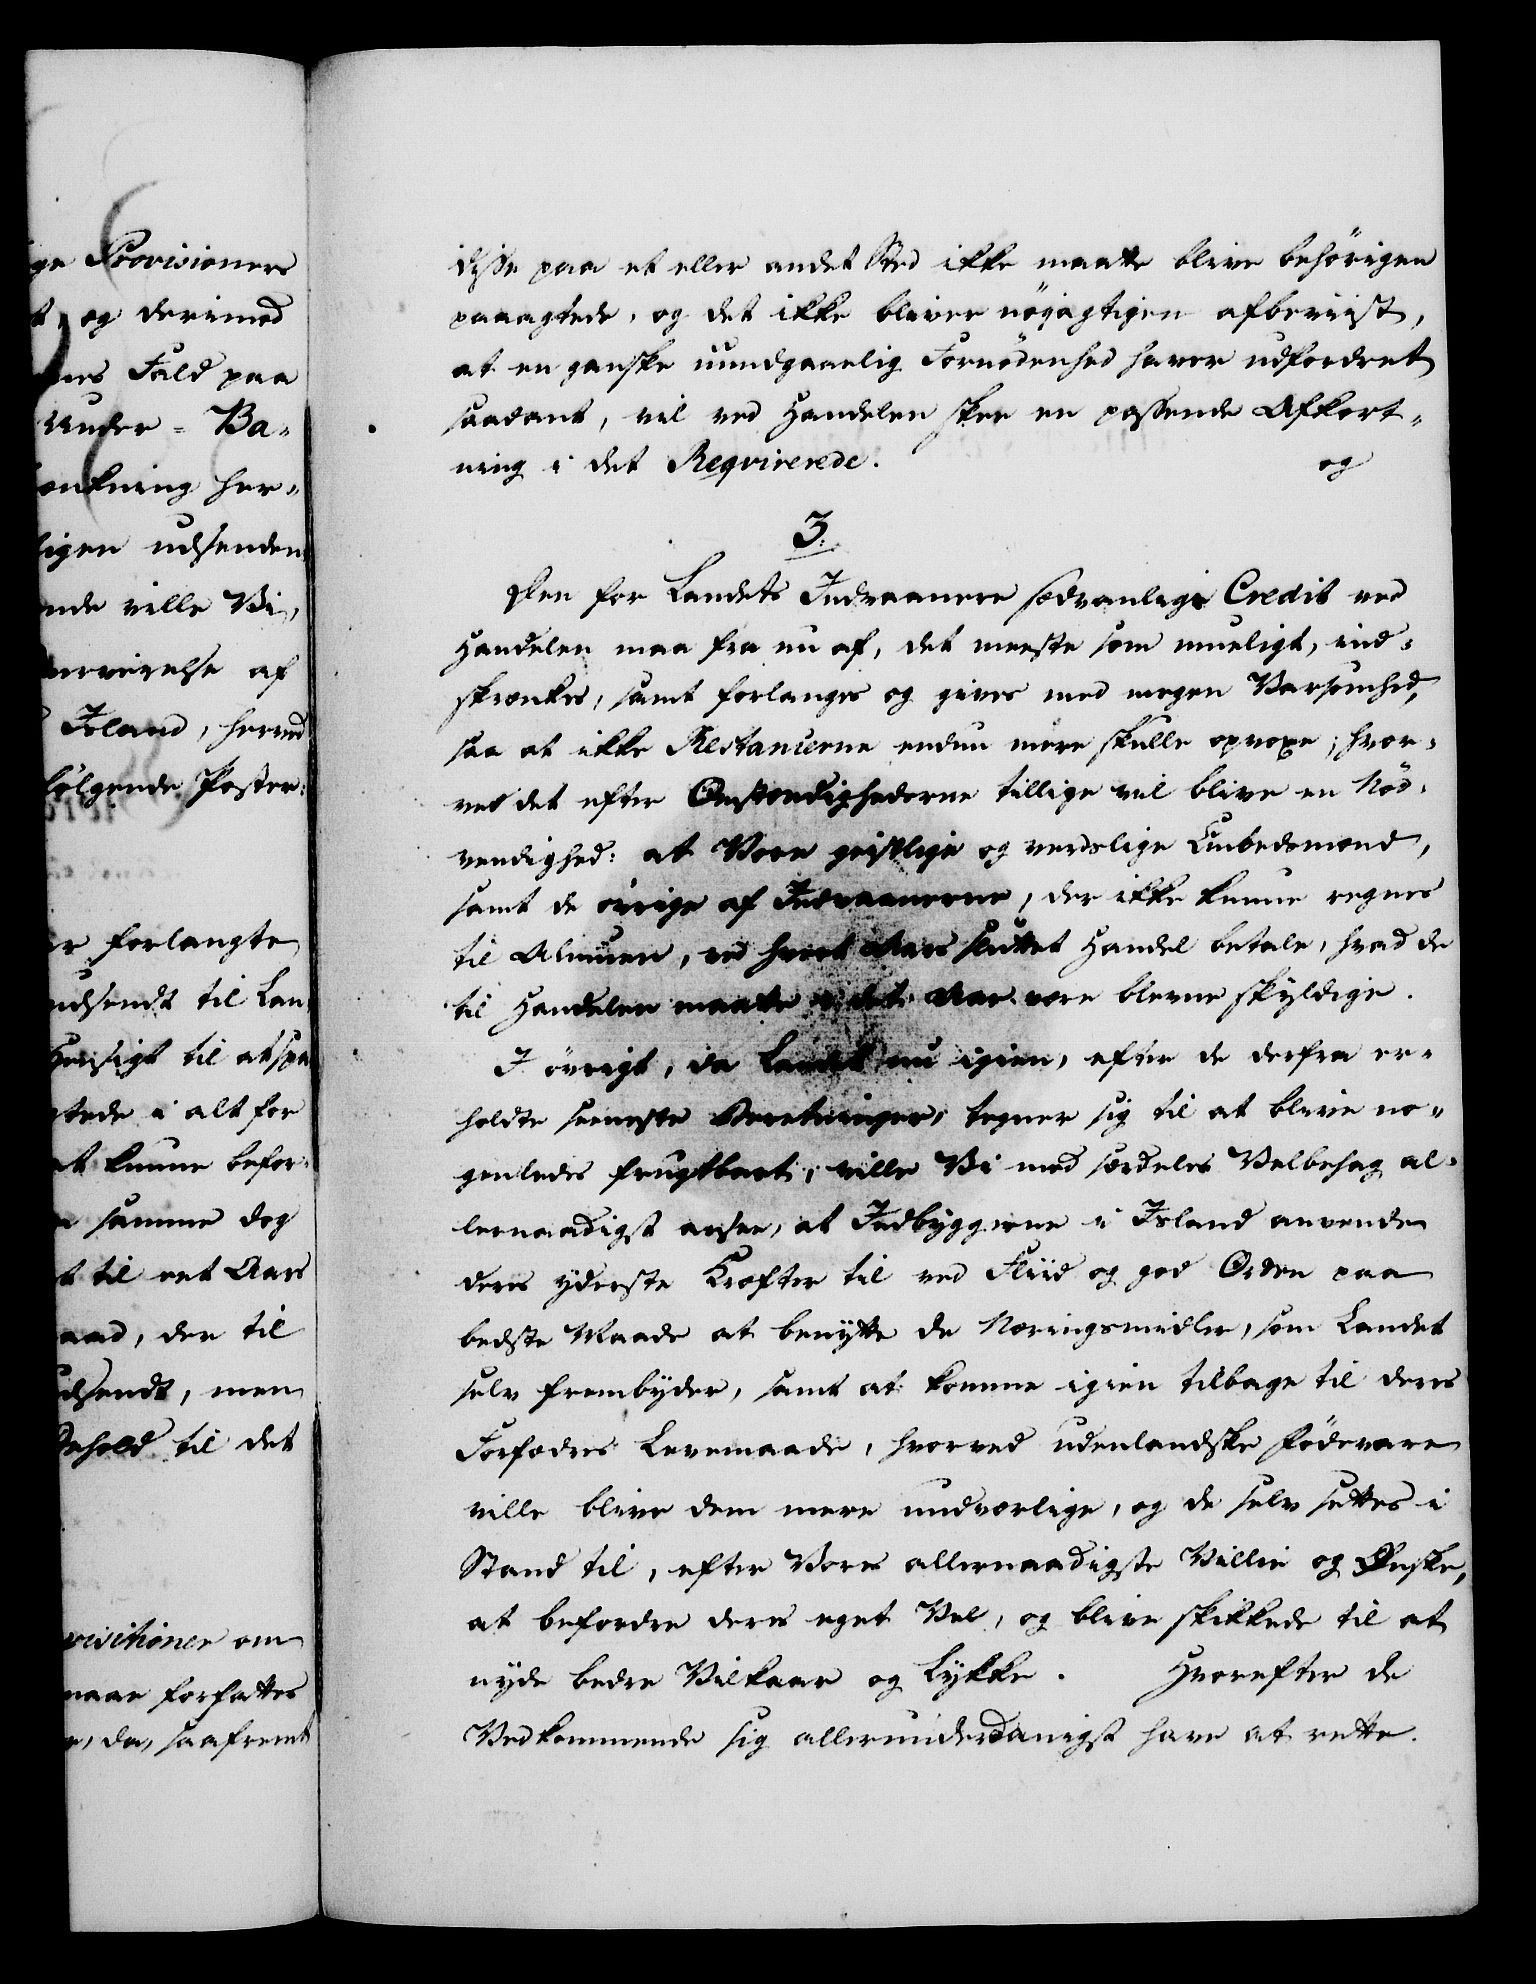 ge Provisioner
t, og derimod
Fald paa
Under-Ba-
ænkning her-
ligen udsenden
ende ville Vi,
værelse af
Island, herved
følgende Poster:
er forlangte
udsendt til Lan
Hensigt til at spa
tede i alt for
at kunne befor-
samme dog
t til eet Aars
aad, der til
udsendt, men
Behold til det
visitioner om
naar forfattes
e, da, saafremt
disse paa et eller andet Sted ikke maatte blive behörigen
paaagtede, og det ikke bliver nöjagtigen afbeviist,
at en ganske uundgaaelig Fornödenhed haver udfordret
saadant, vil ved Handelen skee en passende Afkort-
ning i det Reqvirerede. og
3.
Den for Landets Indvaanere sædvanlige Credit ved
Handelen maa fra nu af, det meeste som mueligt, ind-
skrænkes, samt forlanges og gives med megen Varsomhed,
saa at ikke Restancerne endnu mere skulle opvoxe; hvor-
ved det efter Omstændighederne tillige vil blive en Nöd-
vendighed: at Vore geistlige og verdslige Embedsmænd,
samt de övrige af Indvaanerne, der ikke kunne regnes
til Almuen, ved hvert Aars sluttet Handel betale, hvad de
til Handelen maatte i det Aar være blevne skyldige.
I övrigt, da Landet nu igien, efter de derfra er-
holdte seeneste Beretninger, tegner sig til at blive no-
genledes frugtbart, ville Vi med særdeles Velbehag al-
lernaadigst ansee, at Indbyggerne i Island anvende
deres yderste Kræfter til ved Fliid og god Orden paa
bedste Maade at benytte de Næringsmidler, som Landet
selv frembyder, samt at komme igien tilbage til deres
Forfædres Levemaade, hvorved udenlandske Födevare
ville blive dem mere undværlige, og de selv settes i
Stand til, efter Vores allernaadigste Villie og Ønske,
at befordre deres eget Vel, og blive skikkede til at
nyde bedre Vilkaar og Lykke. Hvorefter de
Vedkommende sig allerunderdanigst have at rette.